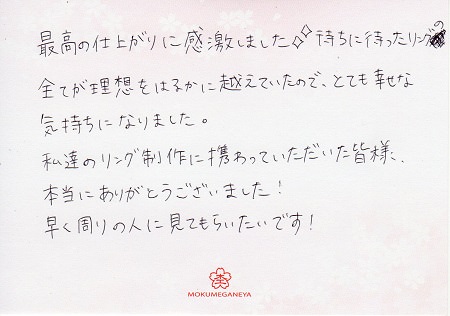 最高の仕上がりに感激しました✧✧待ちに待ったリングの
全てが理想をはるかに越えていたので、とても幸せな
気持ちになりました。
私達のリング制作に携わっていただいた皆様、
本当にありがとうございました!
早く周りの人に見てもらいたいです!
MOKUMEGANEYA